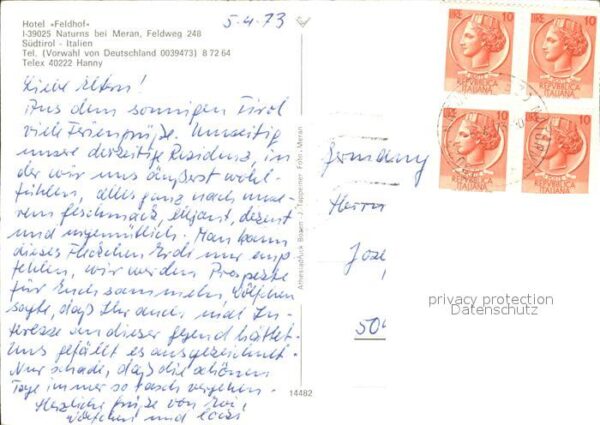 Hotel «Feldhof»
I-39025 Naturns bei Meran, Feldweg 248
Südtirol - Italien
Tel. (Vorwahl von Deutschland 0039473) 8 72 64
Telex 40222 Hanny
5.4.73
Liebe Eltern!
Aus dem sonnigen Tirol
viele Feriengrüße. Umseitig
unsere derzeitige Residenz, in
der wir uns äußerst wohl-
fühlen, alles ganz nach unse-
rem Geschmack, elegant, dezent
und urgemütlich. Man kann
dieses Fleckchen Erde nur emp
fehlen, wir werden Prospekte
für Euch sammeln, Wölfchen
sagte, daß Ihr auch mal In-
teresse an dieser Gegend hättet.
Uns gefällt es ausgezeichnet.
Nur schade, daß die schönen
Tage immer so rasch vergehen.
Herzliche Grüße von
Wölfchen und
Athesiadruck Bozen - J. Tappeiner Foto, Meran
14482
Germany
Herrn
Jose
50
LIRE 10
LIRE 10
REPVBBLICA
ITALIANA
REPVBBLICA
ITALIANA
LIRE 10
LIRE 10
REPVBBLICA
ITALIANA
REPVBBLICA
ITALIANA
privacy protection
Datenschutz